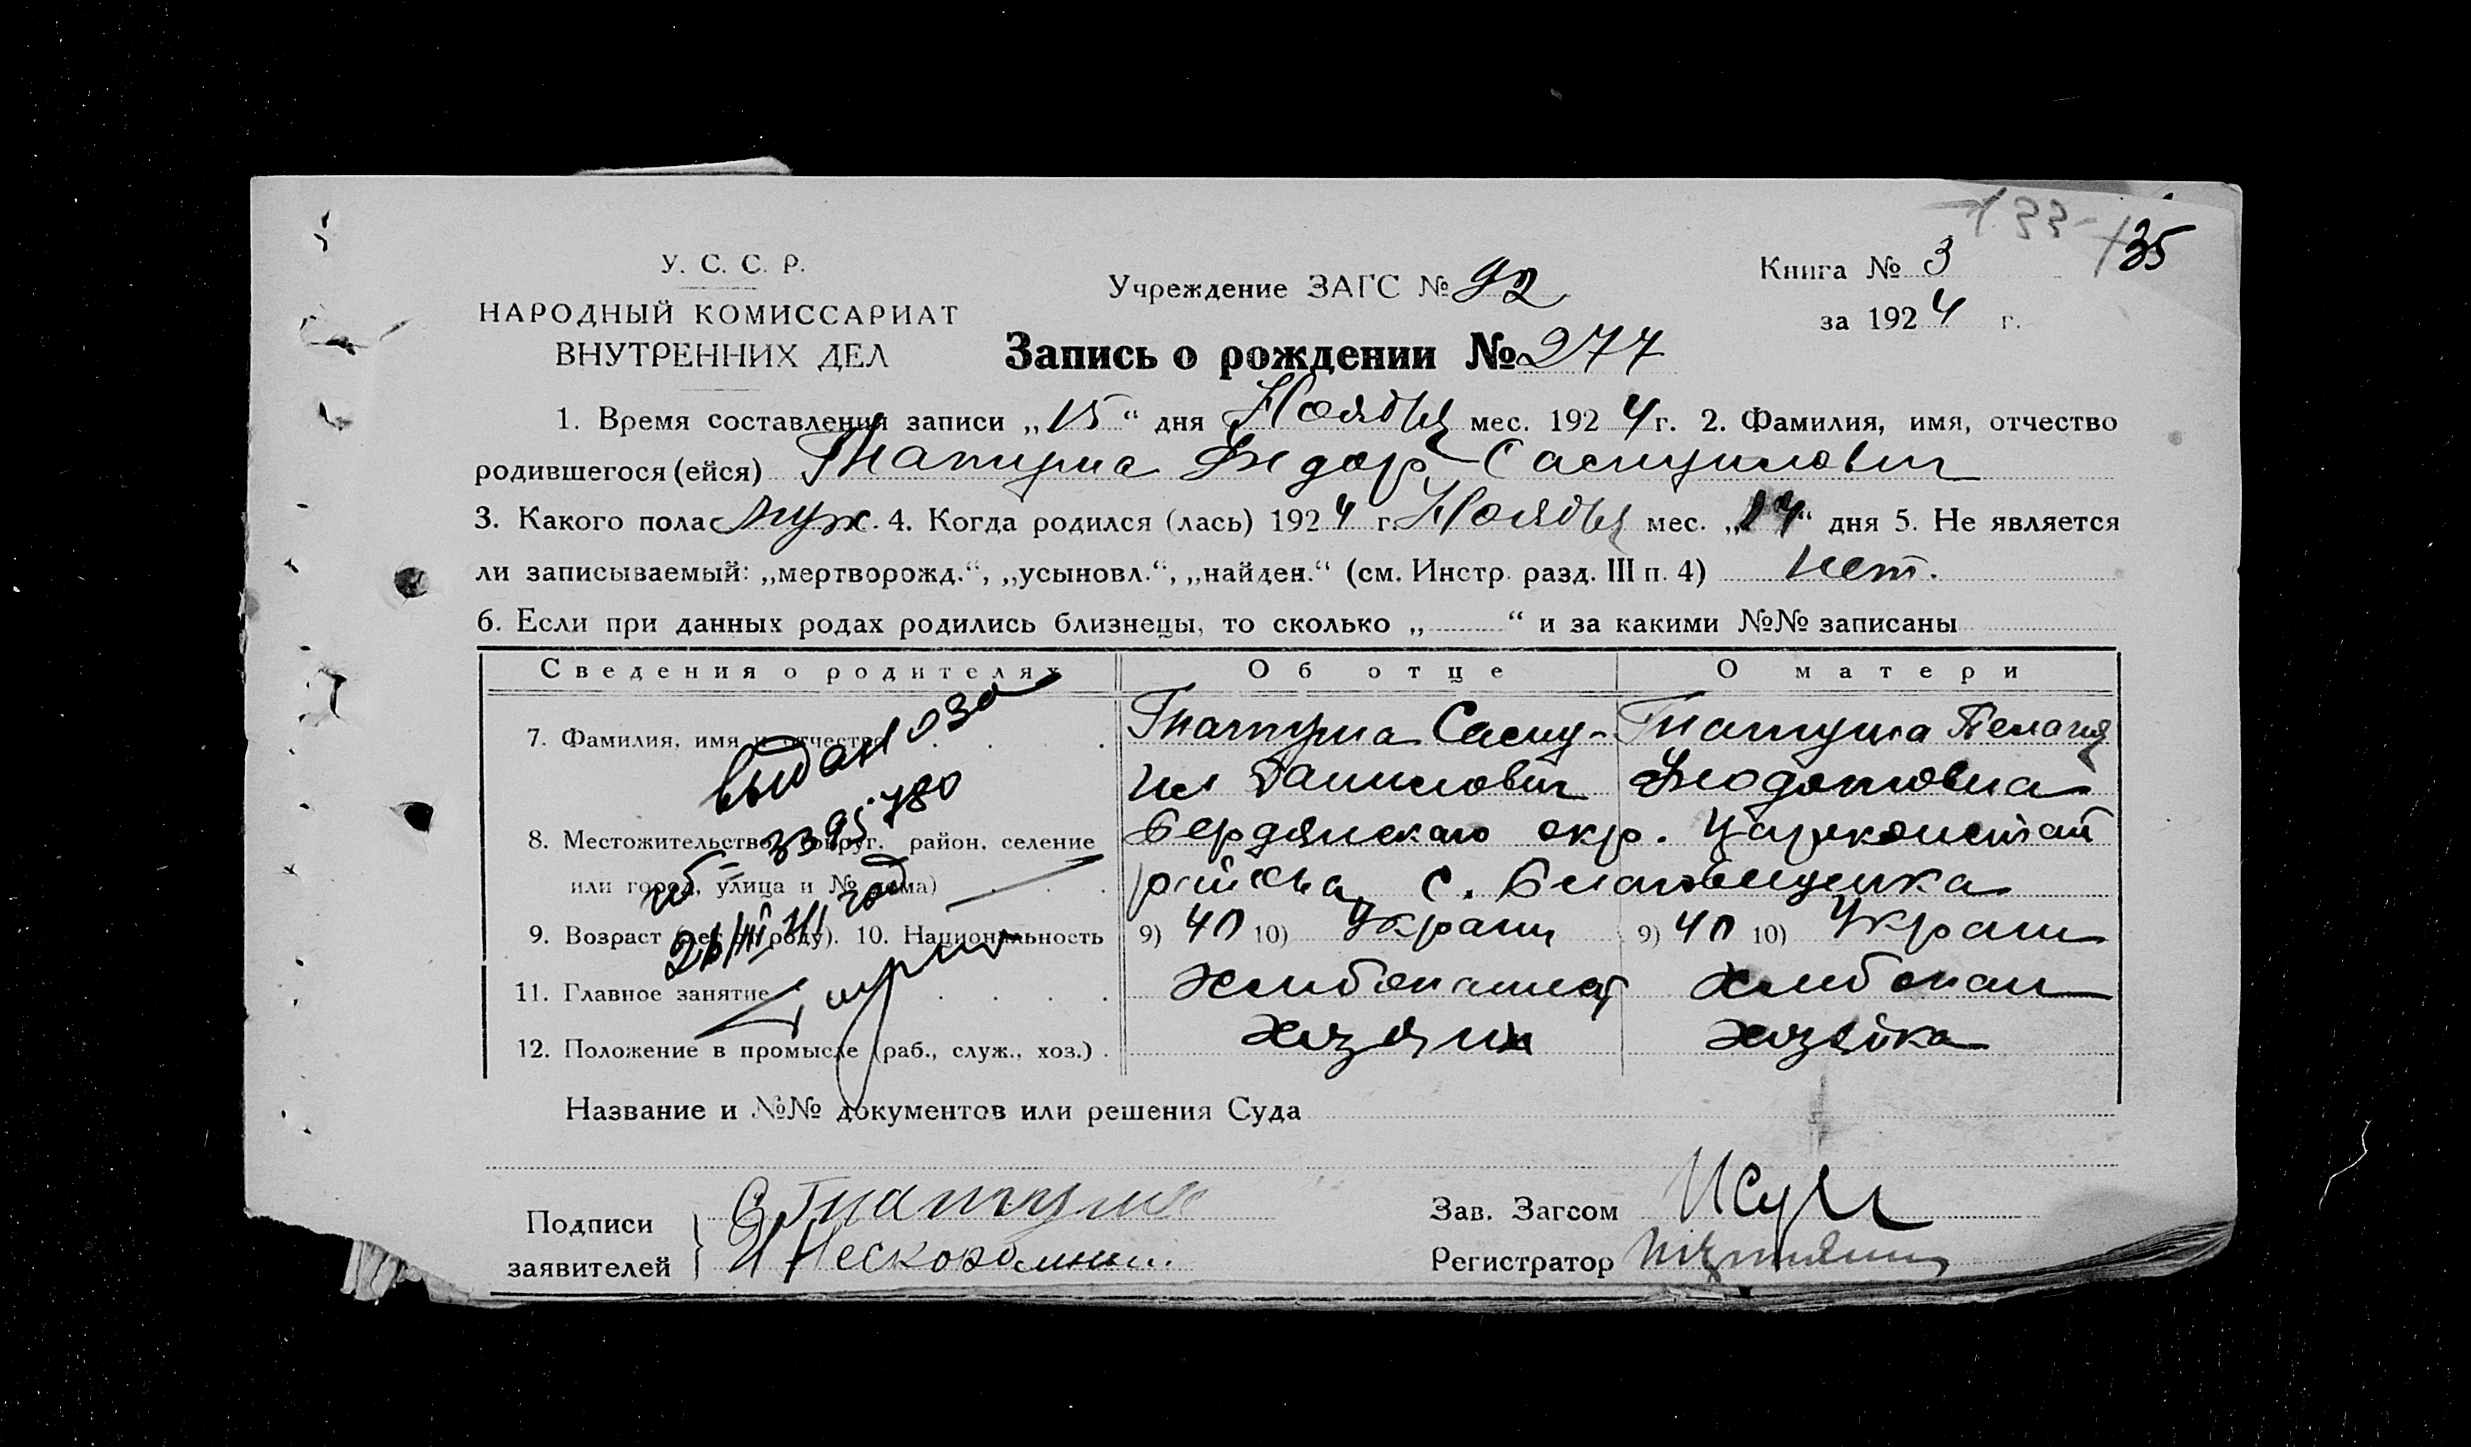 133-
135
У. С. С. Р.
НАРОДНЫЙ КОМИССАРИАТ
ВНУТРЕННИХ ДЕЛ
Учреждение ЗАГС № 92
Книга № 3
за 1924 г.
Запись о рождении № 277
1. Время составления записи „15“ дня Ноября мес. 1924 г. 2. Фамилия, имя, отчество
родившегося (ейся) Гнатуша Федор Самуилович
3. Какого пола муж. 4. Когда родился (лась) 1924 г. Ноября мес. „14“ дня 5. Не является
ли записываемый: „мертворожд.“, „усыновл.“, „найден.“ (см. Инстр. разд. III п. 4) нет.
6. Если при данных родах родились близнецы, то сколько „ “ и за какими №№ записаны
Сведения о родителях Об отце О матери
7. Фамилия, имя и отчество Гнатуша Саму- Гнатуша Пелагия
ил Данилович Феодотовна
8. Местожительство (округ, район, селение Бердянского окр. Цареконстан
или город, улица и № дома) района, с. Благовещенка
9. Возраст (лет от роду). 10. Национальность 9) 40 10) Украин 9) 40 10) Украин
11. Главное занятие
12. Положение в промысле (раб., служ., хоз.) хозяин хозяйка
Название и №№ документов или решения Суда
Подписи
заявителей
С Гнатуша
Зав. Загсом
Регистратор